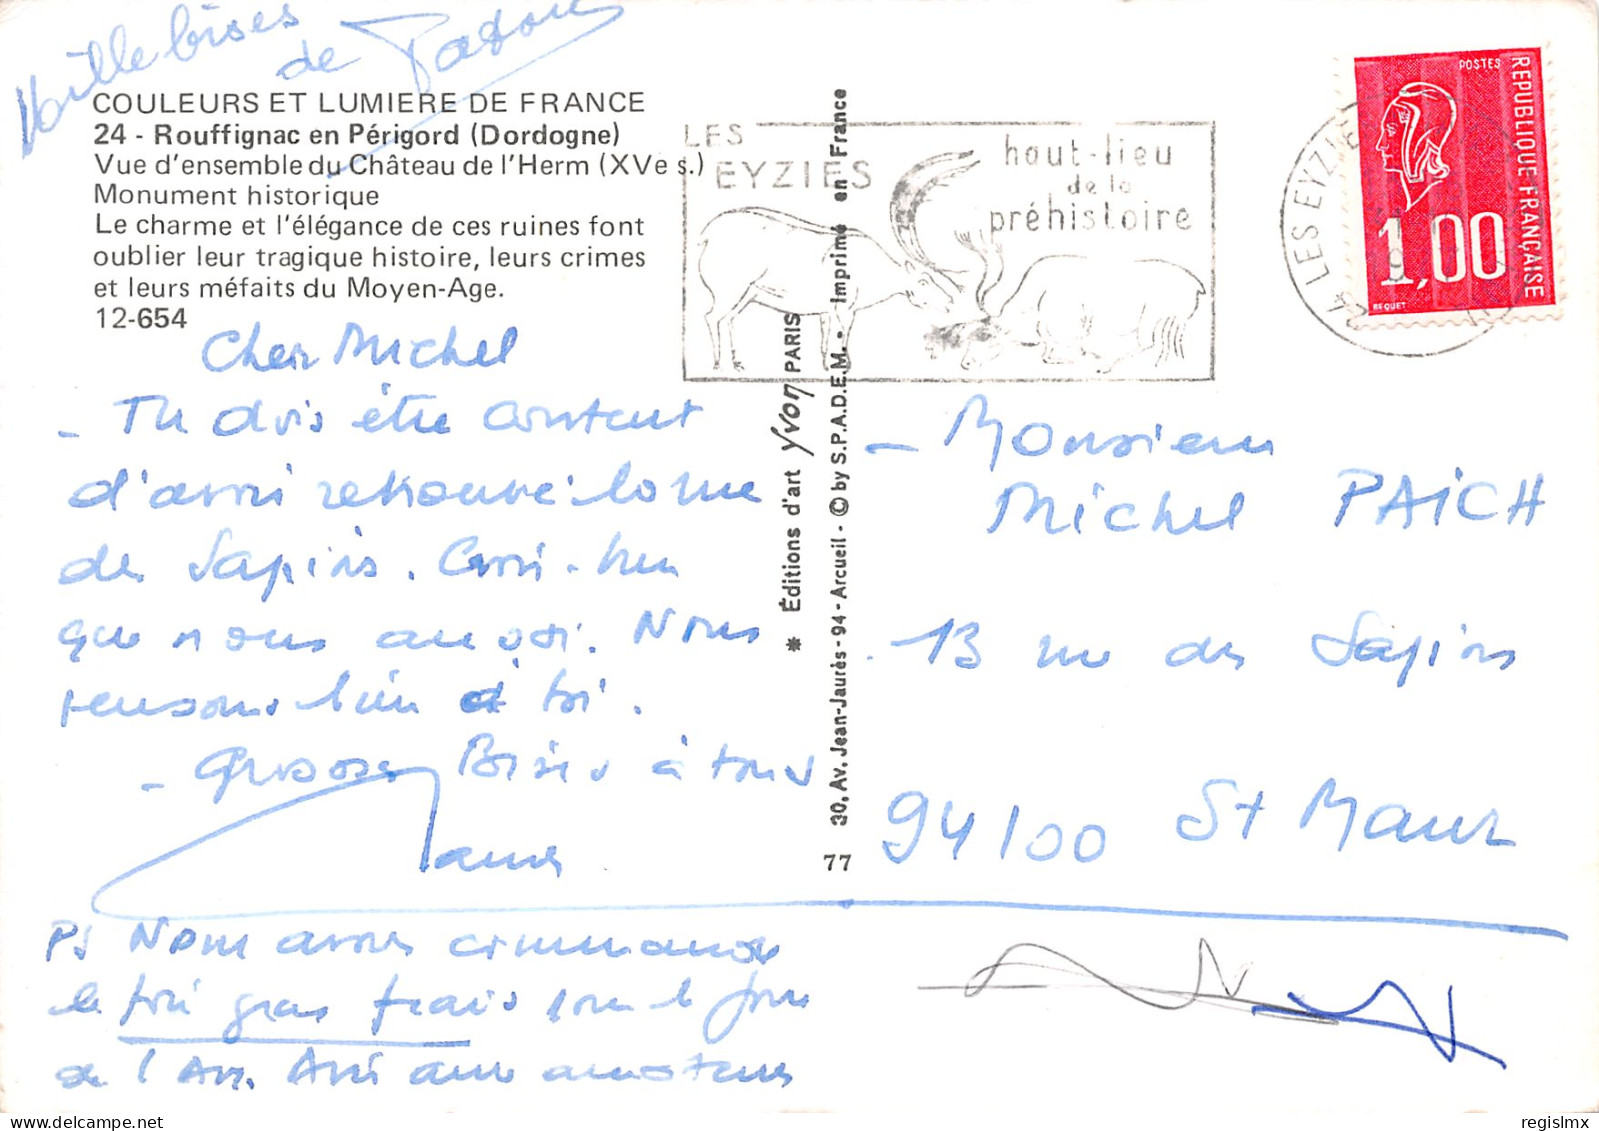 Mille bises
de Tatou
COULEURS ET LUMIERE DE FRANCE
24 - Rouffignac en Périgord (Dordogne)
Vue d'ensemble du Château de l'Herm (XVe s.)
Monument historique
Le charme et l'élégance de ces ruines font
oublier leur tragique histoire, leurs crimes
et leurs méfaits du Moyen-Age.
12-654
Cher Michel
- Tu dois être content
d'avoir retrouvé la rue
des Sapins. Aussi-bien
que nous aussi. Nous
pensons bien à toi.
- Grosses Bises à tous
PS Nous avons commandé
le foie gras frais pour le jour
de l'An. Avis aux amateurs
LES
EYZIES
haut-lieu
de la
préhistoire
24 LES EYZIES
POSTES
REPUBLIQUE FRANÇAISE
1,00
BEQUET
* Éditions d'art Yvon PARIS
30, Av. Jean-Jaurès - 94 - Arcueil - © by S.P.A.D.E.M. - Imprimé en France
77
- Monsieur
Michel PAICH
13 rue des Sapins
94100 St Maur
regislmx